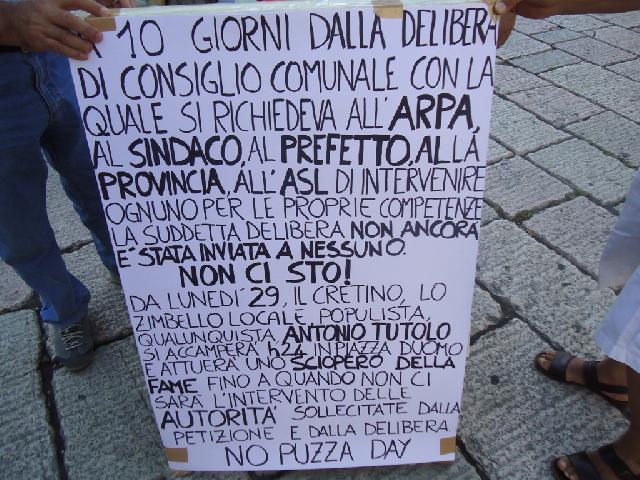 A 10 GIORNI DALLA DELIBERA
DI CONSIGLIO COMUNALE CON LA
QUALE SI RICHIEDEVA ALL'ARPA,
AL SINDACO, AL PREFETTO, ALLA
PROVINCIA, ALL'ASL DI INTERVENIRE
OGNUNO PER LE PROPRIE COMPETENZE
LA SUDDETTA DELIBERA NON ANCORA
E' STATA INVIATA A NESSUNO.
NON CI STO!
DA LUNEDI' 29, IL CRETINO, LO
ZIMBELLO LOCALE, POPULISTA,
QUALUNQUISTA, ANTONIO TUTOLO
SI ACCAMPERA' h24 IN PIAZZA DUOMO
E ATTUERA' UNO SCIOPERO DELLA
FAME FINO A QUANDO NON CI
SARA' L'INTERVENTO DELLE
AUTORITA' SOLLECITATE DALLA
PETIZIONE E DALLA DELIBERA.
NO PUZZA DAY